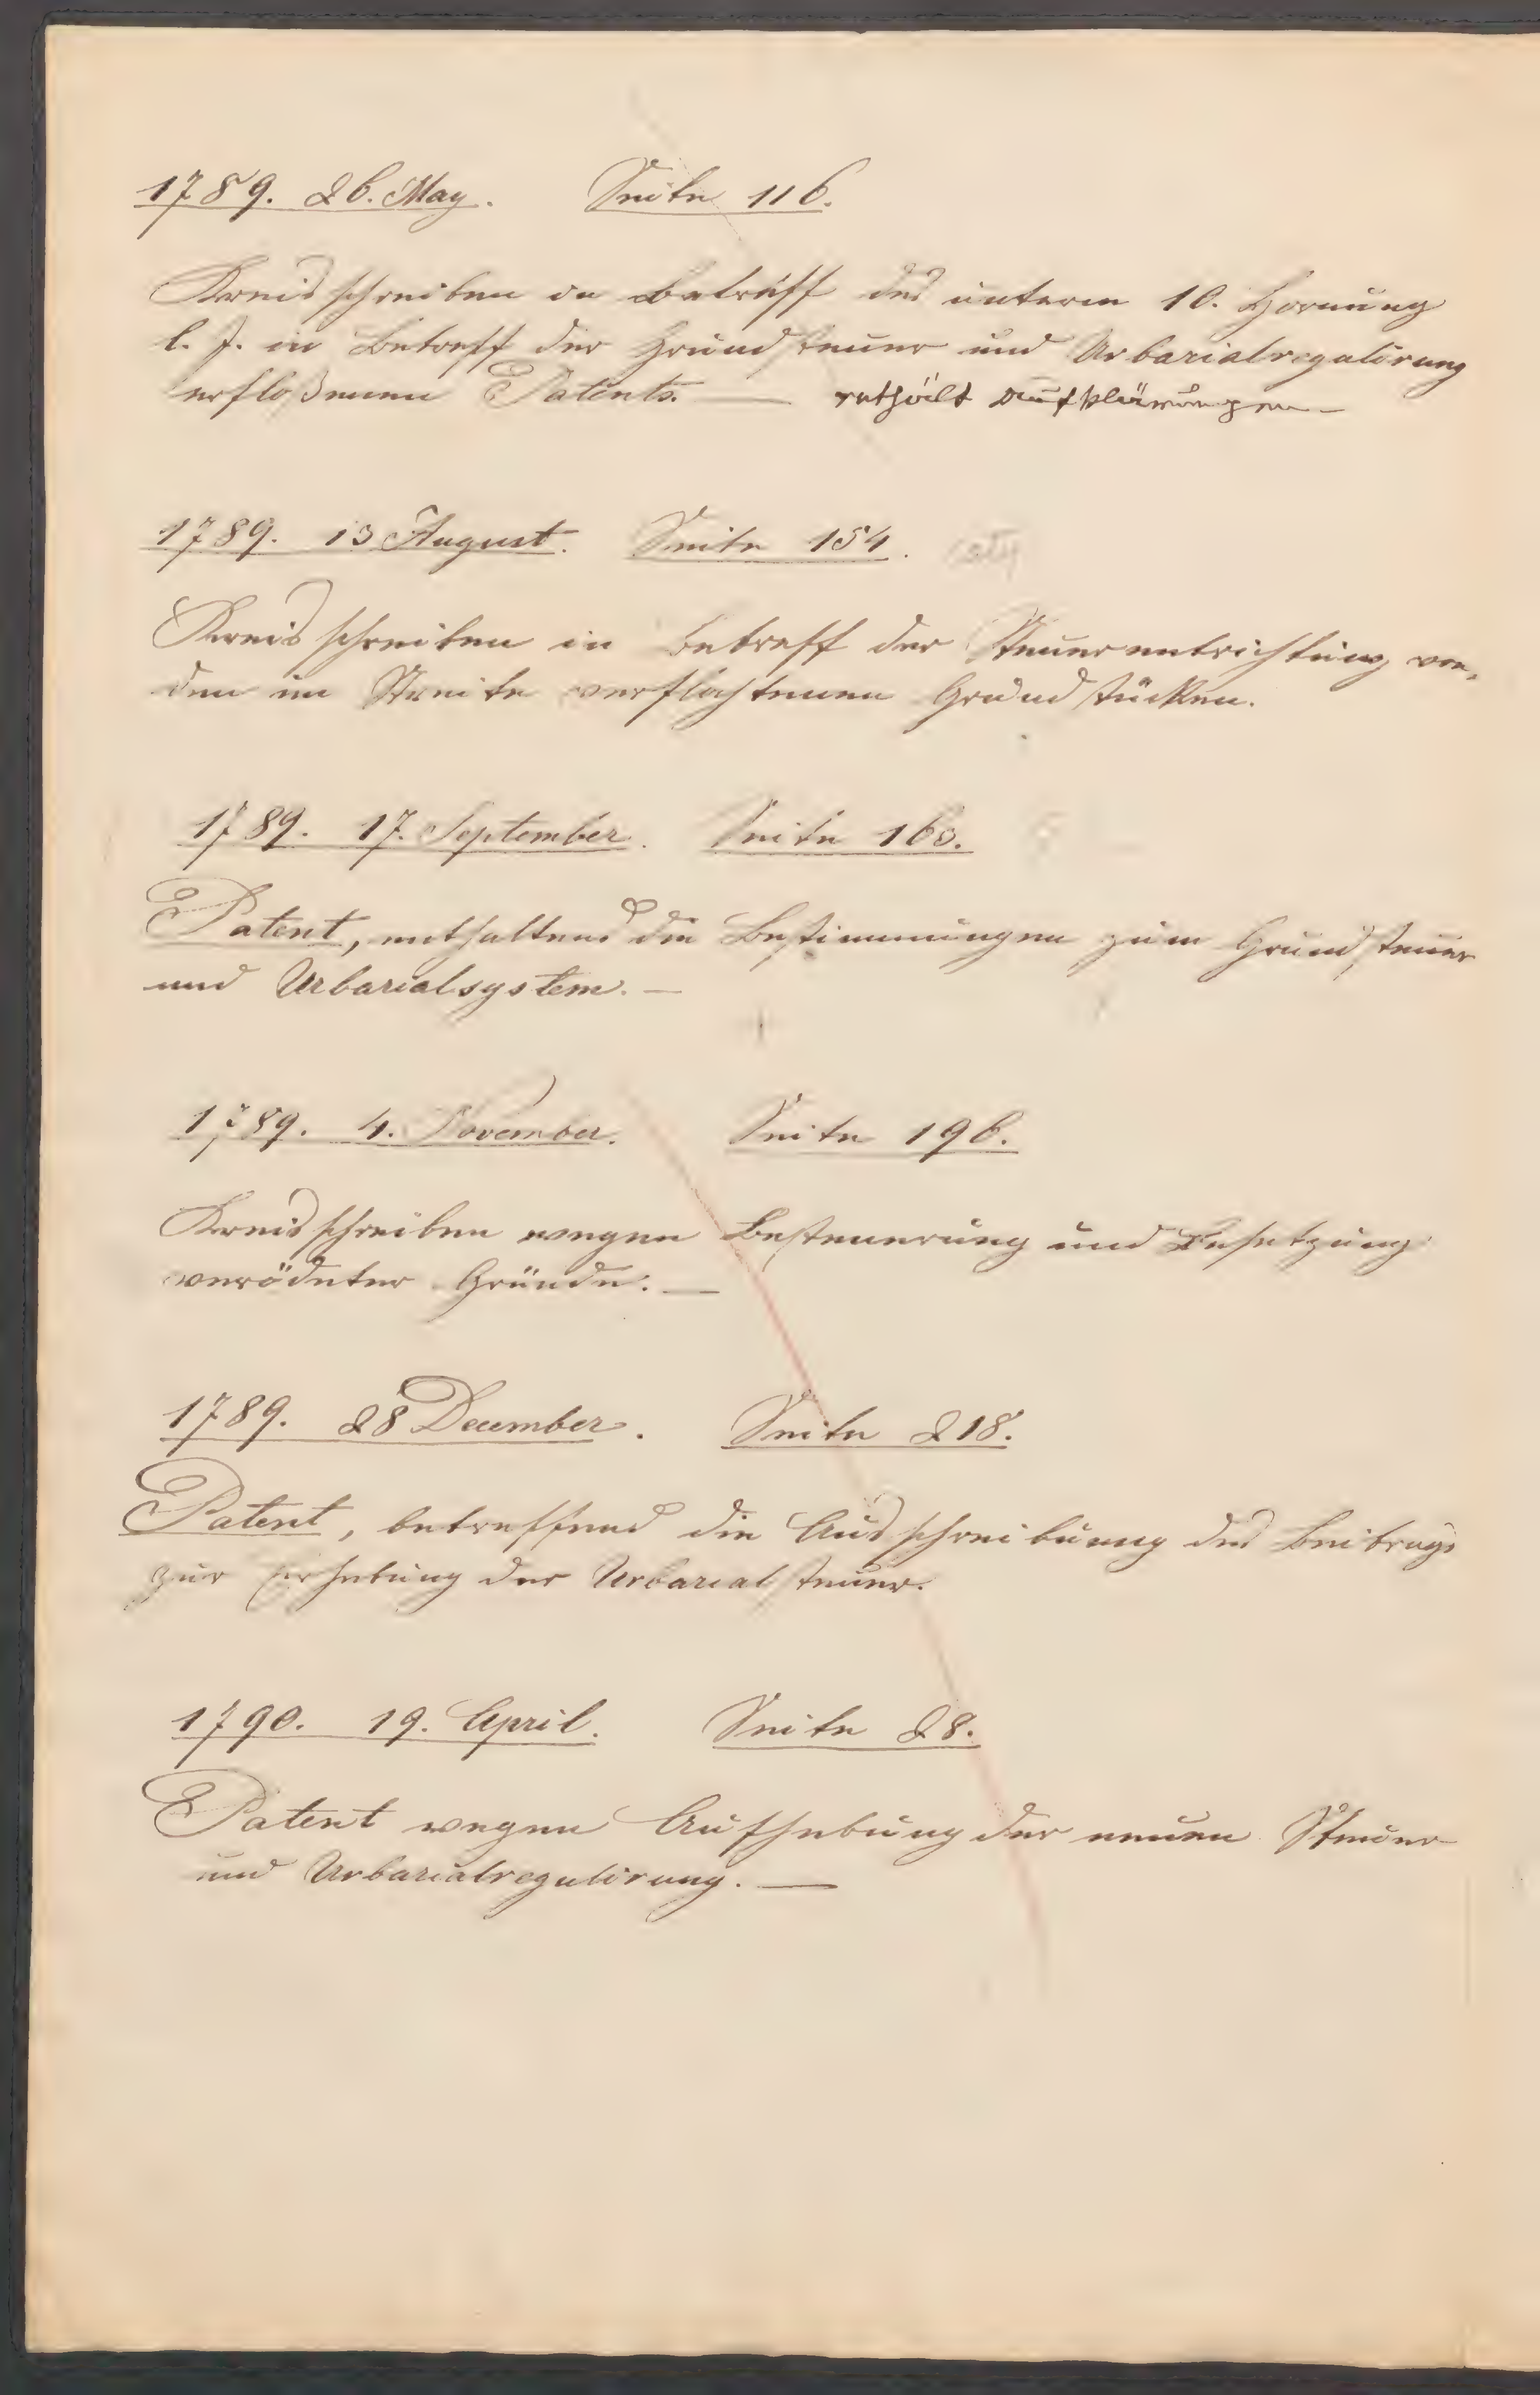 1789. 26. May. Seite 116.
Kreisschreiben in Betreff des unterm 10. Hornung
l. J. in Betreff der Grundsteuer und Urbarialregulirung
erfloßenen Patents. — enthält Aufklärungen —
1789. 13 August. Seite 154.
Kreisschreiben in Betreff der Steuerentrichtung von
den im Streite verflochtenen Grundstücken.
1789. 17. September. Seite 160.
Patent, enthaltend die Bestimmungen zum Grundsteuer
und Urbarialsystem. —
1789. 4. November. Seite 196.
Kreisschreiben wegen Besteuerung und Besetzung
verödeter Gründe. —
1789. 28 December. Seite 218.
Patent, betreffend die Ausschreibung des Beitrags
zur Erhebung der Urbarialsteuer.
1790. 19. April. Seite 28.
Patent wegen Aufhebung der neuen Steuer
und Urbarialregulirung. —